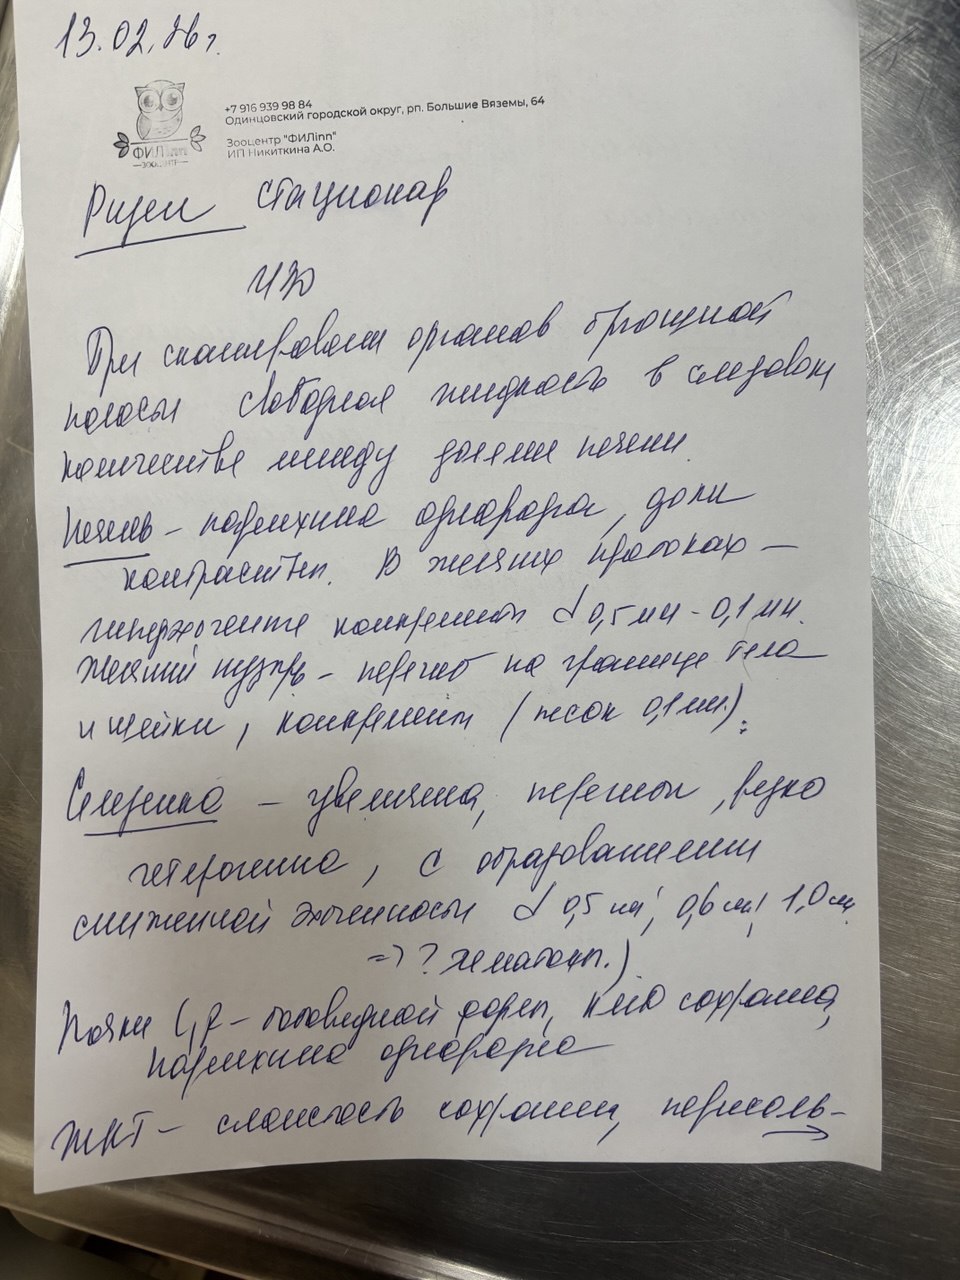 13.02.26г.
ФИЛinn
ЗООЦЕНТР
+7 916 939 98 84
Одинцовский городской округ, рп. Большие Вяземы, 64
Зооцентр "ФИЛinn"
ИП Никиткина А.О.
стационар
УЗИ
При сканировании органов брюшной
полости свободная жидкость в следовом
количестве между долями печени.
Печень – паренхима однородна, доли
контрастны. В желчных протоках –
гиперэхогенные конкременты d 0,5 мм - 0,1 мм.
Желчный пузырь – перегиб на границе тела
и шейки, конкременты (песок 0,1 мм).
Селезенка – увеличена, резко
гетерогенна, с образованиями
сниженной эхогенности d 0,5 см, 0,6 см, 1,0 см
=> ? гематомы.)
Почки L, R – бобовидной формы, КМД сохранна,
паренхима однородна
ЖКТ – слоистость сохранна, перисталь-